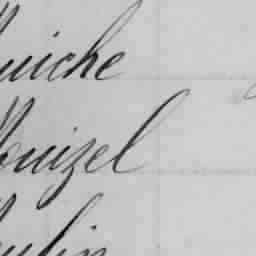 ouiche
ouizel
oulin